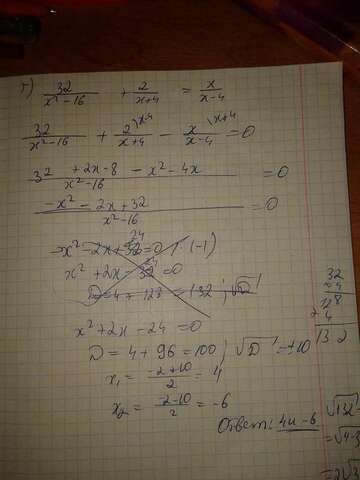 г) 32/(x²-16) + 2/(x+4) = x/(x-4)
32/(x²-16) + 2\x-4/(x+4) - x\x+4/(x-4) = 0
(32 + 2x-8 - x² - 4x)/(x²-16) = 0
(-x² - 2x + 32)/(x²-16) = 0
-x² - 2x + 32 24 = 0 | · (-1)
x² + 2x - 32 24 = 0
D = 4 + 128 = 132; √D
x² + 2x - 24 = 0
D = 4 + 96 = 100; √D = ±10
x₁ = (-2+10)/2 = 4
x₂ = (-2-10)/2 = -6
Ответ: 4 и -6
32
4
128
+ 4
132
√132
= √4·3
= 2√3